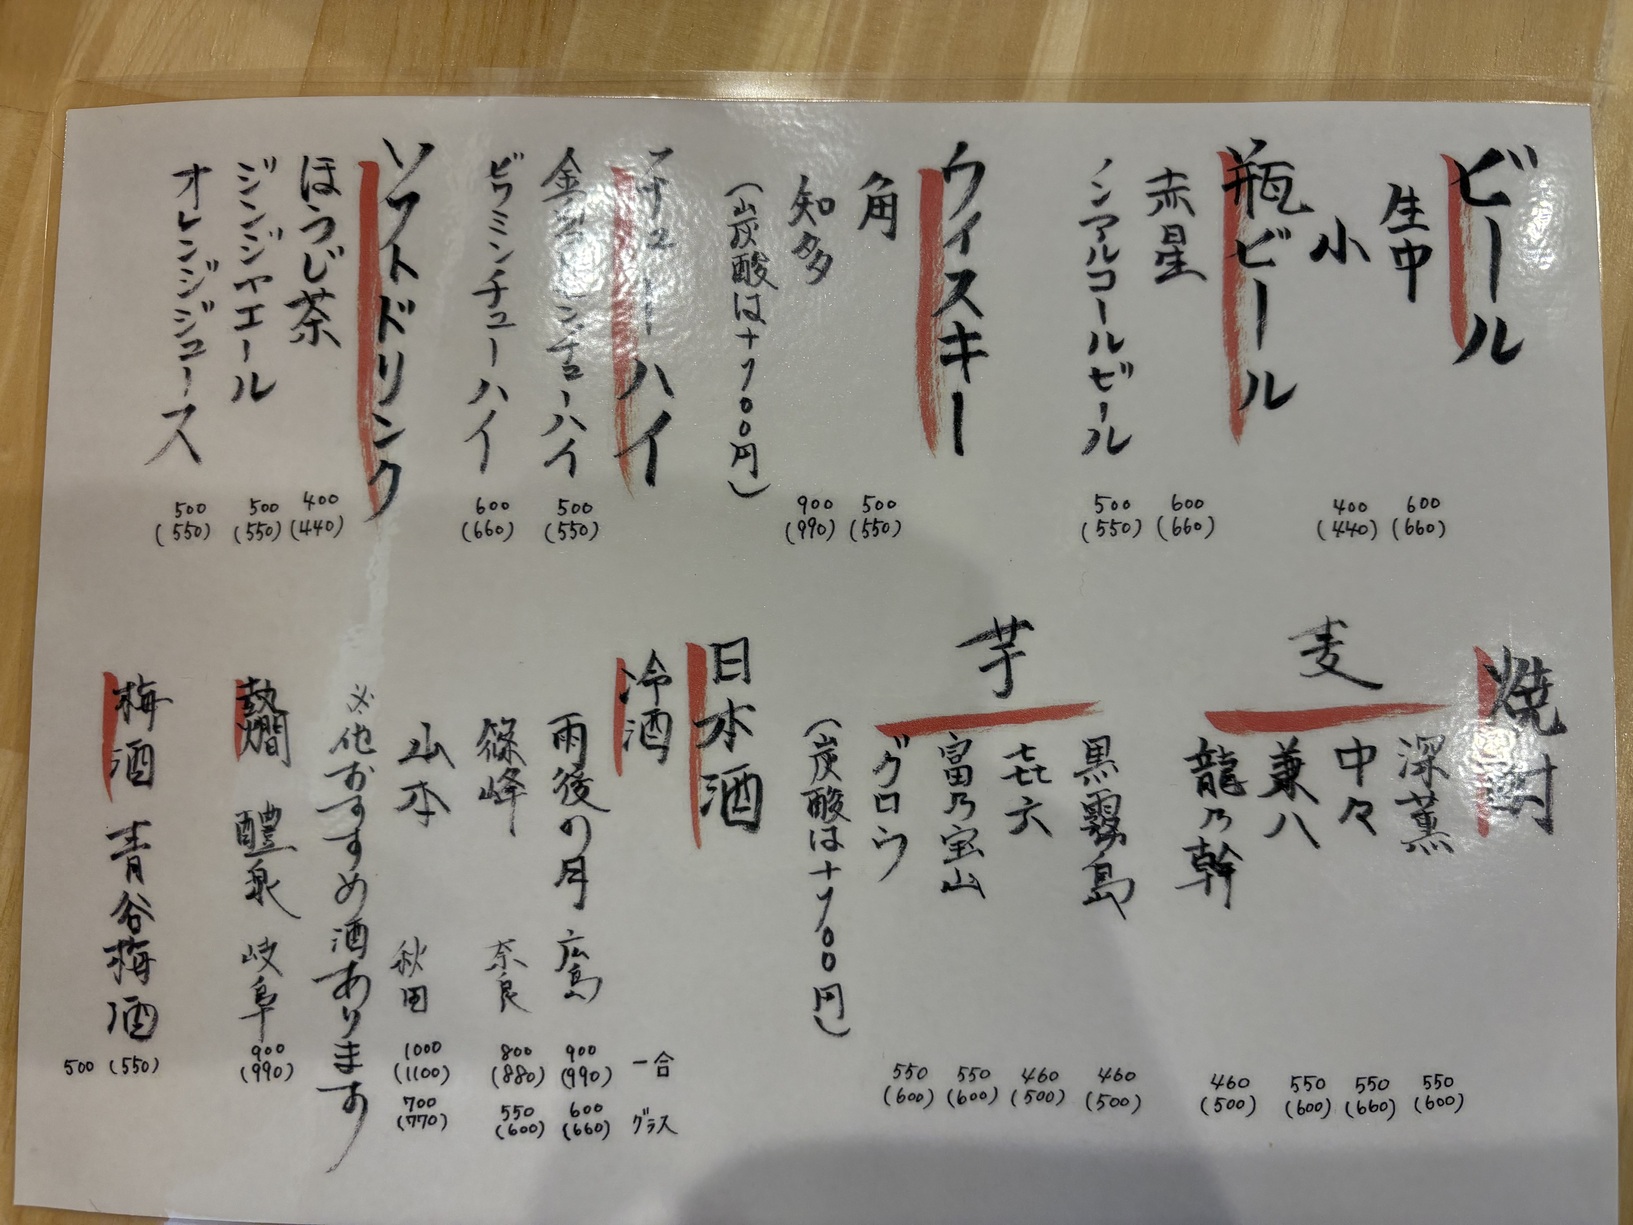 ビール
生中 600 (660)
小 400 (440)
瓶ビール
赤星 600 (660)
ノンアルコールビール 500 (550)
ウィスキー
角 500 (550)
知多 900 (990)
(炭酸は+100円)
チューハイ
チューハイ 500 (550)
ビワミンチューハイ 600 (660)
ソフトドリンク
ほうじ茶 400 (440)
ジンジャエール 500 (550)
オレンジジュース 500 (550)
焼酎
麦
深薫 550 (600)
中々 550 (660)
兼八 550 (600)
龍乃幹 460 (500)
芋
黒霧島 460 (500)
㐂六 460 (500)
富乃宝山 550 (600)
グロウ 550 (600)
(炭酸は+100円)
日本酒
冷酒 一合 グラス
雨後の月 広島 900 (990) 600 (660)
篠峰 奈良 800 (880) 550 (600)
山本 秋田 1000 (1100) 700 (770)
※他おすすめ酒あります
熱燗 醴泉 岐阜 900 (990)
梅酒 青谷梅酒 500 (550)